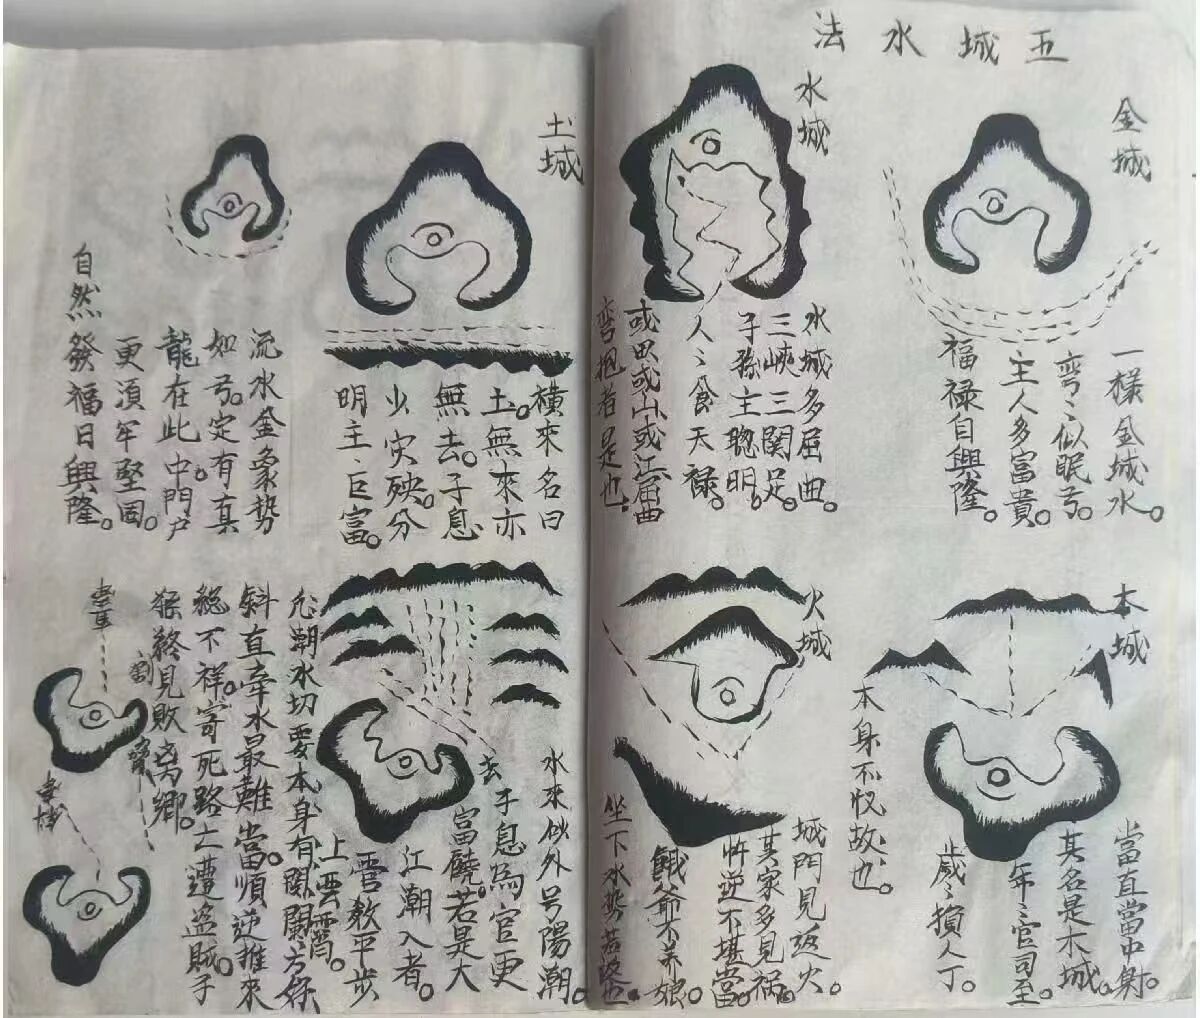 五城水法
金城
一樣金城水。
彎〻似眠弓。
主人多富貴。
福禄自興隆。
水城
水城多屈曲。
三峽三関足。
子孫主聰明。
人〻食天禄。
或田或山或江屈曲
彎抱者是也。
木城
當直當中射。
其名是木城。
年〻官司至。
歲〻損人丁。
本身不悅故也。
火城
城門見返火。
其家多見禍。
忤逆不堪當。
餓爺不养娘。
坐下水势若
土城
横來名曰
土。無來亦
無去。子息
少灾殃。分
明主巨富。
流水金象势
如弓。定有真
龍在此中。門户
更須牢堅固。
自然發福日興隆。
水來似外号陽潮。
去
子息為官更
富饒。若是大
江潮入者。
雲教平步
上雲霄。
凡潮水切要本身有関闌方好
斜直牽水最難當。順逆推來
總不祥。寄死路亡遭盗賊。子
孫終見敗离鄉。
割